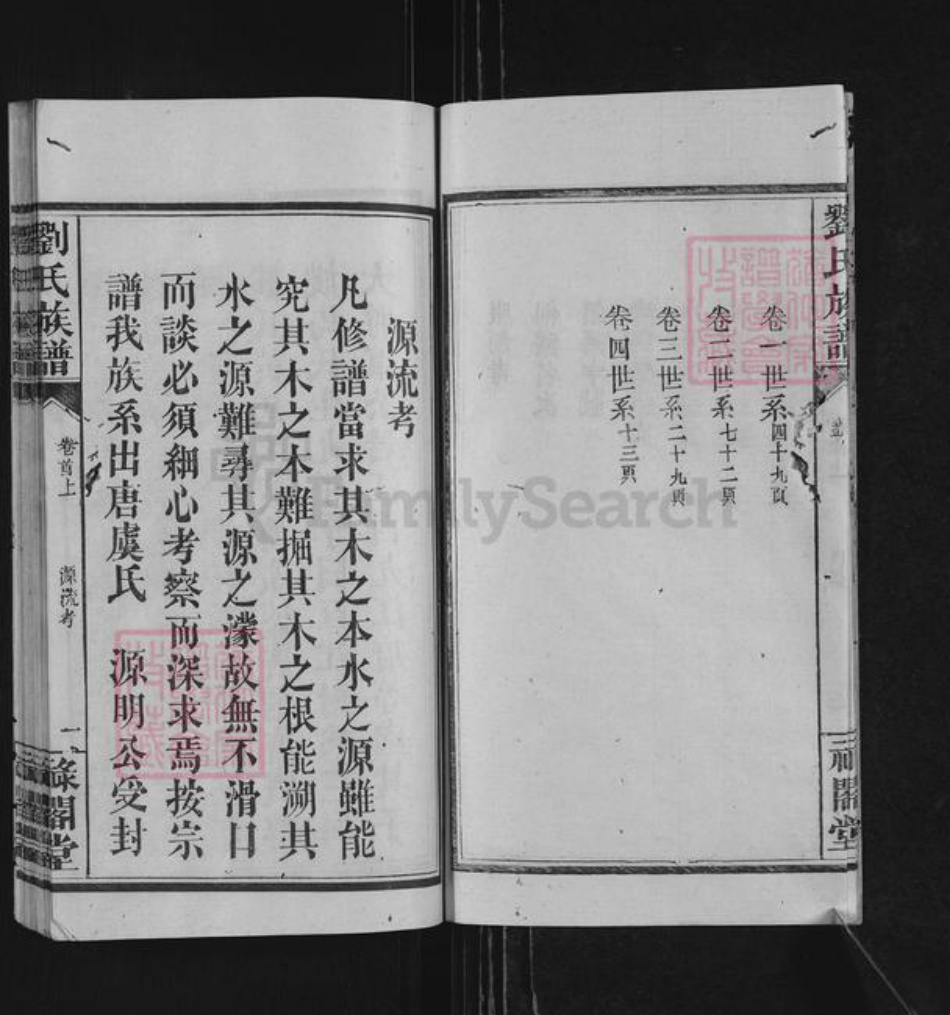 劉氏族譜
卷一世系四十九頁
卷二世系七十二頁
卷三世系二十九頁
卷四世系十三頁
閣堂
源流考
凡修譜當求其木之本水之源雖能
究其木之本難掘其木之根能溯其
水之源難尋其源之濛故無不滑口
而談必須細心考察而深求焉按宗
譜我族系出唐虞氏 源明公受封
劉氏族譜
卷首上 源流考 一
祿閣堂
FamilySearch